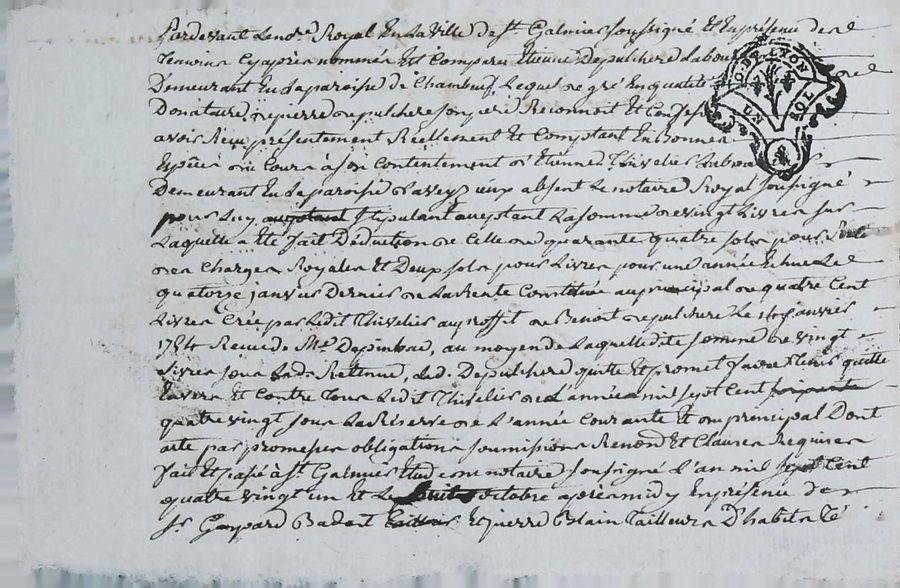 Pardevant Le not.re Royal En La ville de S.t Galmier soussigné Et En présence des
Temoins Cy après nommés Est Comparu Etienne Dépulchere Labou
Demeurant En La paroisse de Chambeuf, Lequel de gré En qualité de
Donataire de pierre depulchere son pere Reconnoit Et Confesse
avoir Reçu présentement Réellement Et Comptant En Bonnes
Espèces au Cours à son Contentement d'Etienne Thivelier Labou
Demeurant En La paroisse absent Le notaire Royal soussigné
pour Luy Stipulant acceptant La somme de vingt Livres sur
Laquelle a Eté fait Déduction de Celle de quarante quatre sols pour
des Charges Royales Et Deux sols pour Livres pour une année Echue Le
quatorze janvier Dernier de La Rente Constituée au principal de quatre Cent
Livres Créée par Ledit Thivelier au proffit de Benoit depulchere Le janvier
1754 Recue de M.e Depinbrac, au moyen de Laquelle dite somme de vingt
Livres sous Lad. Rettenue, Led. Depulchere quitte Et promet faire tenir quitte
Envers Et Contre tous Ledit Thivelier de L'année mil sept Cent
quatre vingt sous La Réserve de L'année Courante Et du principal Dont
acte par promesses obligations soumissions Renond Et Clauses Requises
fait Et passé à S.t Galmier Etude notaire soussigné L'an mil sept Cent
quatre vingt un Et Le octobre après midy En présence de
S.r Gaspard Badart Et pierre Blain Tailleurs D'habits
G. DE LYON
UN SOL